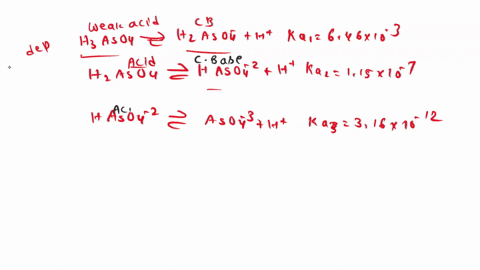 weak acid CB
dep H3 AsO4 ⇌ H2 AsO4 + H+ Ka1 = 6.46×10-3
Acid C-Base
H2 AsO4 ⇌ H AsO4-2 + H+ Ka2 = 1.15×10-7
Aci
H AsO4-2 ⇌ AsO4-3 + H+ Ka3 = 3.16×10-12